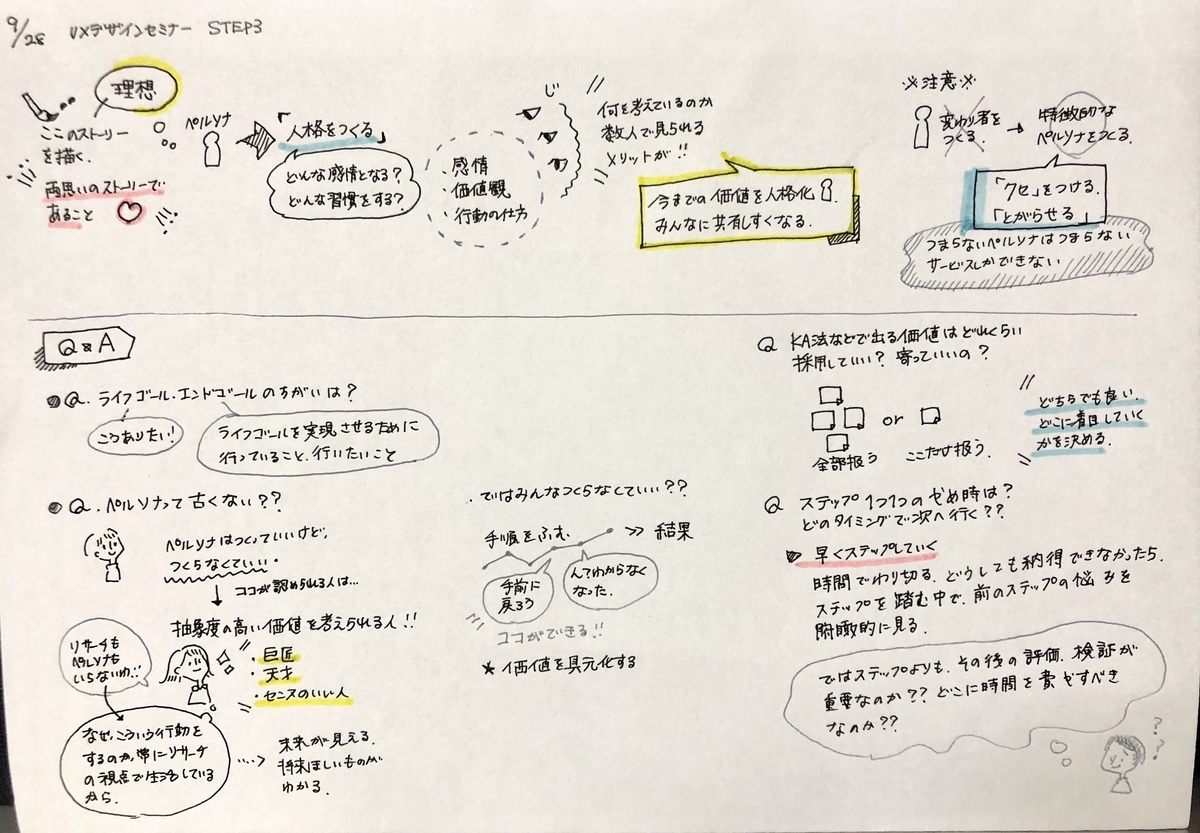 9/28 UXデザインセミナー STEP3
理想
ここのストーリー
を描く.
両思いのストーリーで
あること
ペルソナ
「人格をつくる」
どんな感情となる?
どんな習慣をする?
・感情
・価値観
・行動の仕方
じ
何を考えているのか
数人で見られる
メリットが!!
今までの価値を人格化
みんなに共有しすくなる.
※注意※
変わり者を
つくる.
→ 特徴的な
ペルソナをつくる.
「クセ」をつける.
「とがらせる」
つまらないペルソナはつまらない
サービスしかできない
Q&A
Q. ライフゴール・エンドゴールのちがいは?
こうありたい!
ライフゴールを実現させるために
行っていること、行いたいこと
Q. ペルソナって古くない??
ペルソナはつくっていいけど,
つくらなくていい・
ココが認められる人は…
抽象度の高い価値を考えられる人!!
リサーチも
ペルソナも
いらないわ!!
・巨匠
・天才
・センスのいい人
なぜ、こういう行動を
するのか、常にリサーチ
の視点で生活している
から.
未来が見える.
将来ほしいものが
わかる.
・ではみんなつくらなくていい??
手順をふむ. >> 結果
手前に
戻ろう
んてわからなく
なった.
ココができる!!
★価値を具元化する
Q KA法などで出る価値はどれくらい
採用していい? 寄っていいの?
or
全部扱う ここだけ扱う.
どちらでも良い.
どこに着目していく
かを決める.
Q ステップ1つ1つのやめ時は?
どのタイミングで次へ行く??
早くステップしていく
時間でわり切る. どうしても納得できなかったら.
ステップを踏む中で、前のステップの悩みを
俯瞰的に見る.
ではステップよりも、その後の評価、検証が
重要なのか?? どこに時間を費やすべき
なのか??
? ? ?